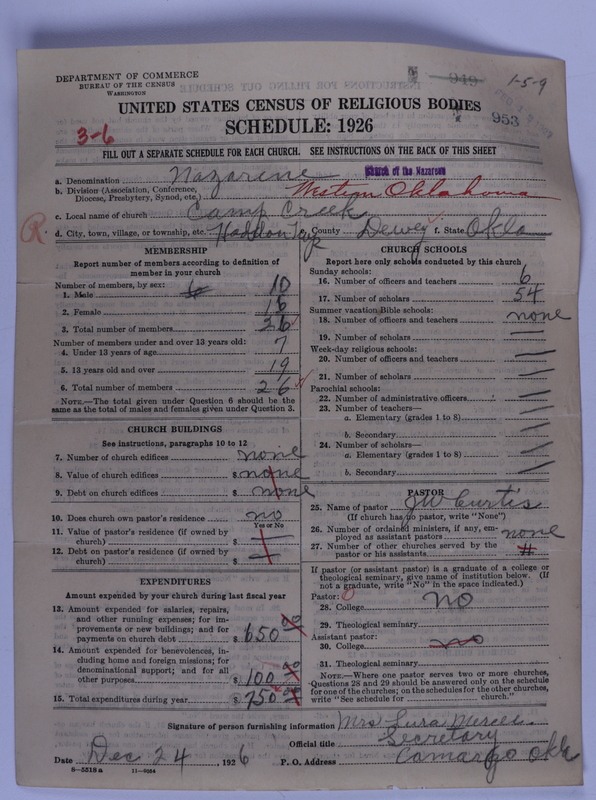 DEPARTMENT OF COMMERCE
BUREAU OF THE CENSUS
WASHINGTON
949
1-5-9
953
UNITED STATES CENSUS OF RELIGIOUS BODIES
SCHEDULE: 1926
3-6
FILL OUT A SEPARATE SCHEDULE FOR EACH CHURCH. SEE INSTRUCTIONS ON THE BACK OF THIS SHEET
Church of the Nazarene
a. Denomination Nazarine
b. Division (Association, Conference, Diocese, Presbytery, Synod, etc.) Western Oklahoma
c. Local name of church Camp Creek
R
d. City, town, village, or township, etc. Haddon Twp County Dewey f. State Okla
MEMBERSHIP
Report number of members according to definition of
member in your church
Number of members, by sex:
1. Male 10
2. Female 16
3. Total number of members 26
Number of members under and over 13 years old:
4. Under 13 years of age 7
5. 13 years old and over 19
6. Total number of members 26
NOTE.—The total given under Question 6 should be the
same as the total of males and females given under Question 3.
CHURCH BUILDINGS
See instructions, paragraphs 10 to 12
7. Number of church edifices none
8. Value of church edifices $ none
9. Debt on church edifices $ none
10. Does church own pastor's residence no
Yes or No
11. Value of pastor's residence (if owned by
church) $
12. Debt on pastor's residence (if owned by
church) $
EXPENDITURES
Amount expended by your church during last fiscal year
13. Amount expended for salaries, repairs,
and other running expenses; for im-
provements or new buildings; and for
payments on church debt $ 650 00
14. Amount expended for benevolences, in-
cluding home and foreign missions; for
denominational support; and for all
other purposes $ 100 00
15. Total expenditures during year $ 750
CHURCH SCHOOLS
Report here only schools conducted by this church
Sunday schools:
16. Number of officers and teachers 6
17. Number of scholars 54
Summer vacation Bible schools:
18. Number of officers and teachers none
19. Number of scholars
Week-day religious schools:
20. Number of officers and teachers
21. Number of scholars
Parochial schools:
22. Number of administrative officers
23. Number of teachers—
a. Elementary (grades 1 to 8)
b. Secondary
24. Number of scholars—
a. Elementary (grades 1 to 8)
b. Secondary
PASTOR
25. Name of pastor J W Curtis
(If church has no pastor, write "None")
26. Number of ordained ministers, if any, em-
ployed as assistant pastors none
27. Number of other churches served by the
pastor or his assistants
If pastor (or assistant pastor) is a graduate of a college or
theological seminary, give name of institution below. (If
not a graduate, write "No" in the space indicated.)
Pastor:
28. College no
29. Theological seminary
Assistant pastor:
30. College no
31. Theological seminary
NOTE.—Where one pastor serves two or more churches,
Questions 28 and 29 should be answered only on the schedule
for one of the churches; on the schedules for the other churches,
write "See schedule for church."
Signature of person furnishing information Mrs
Official title Secretary
Date Dec 24, 1926 P. O. Address Camargo Okla
8-5518 a 11-9064